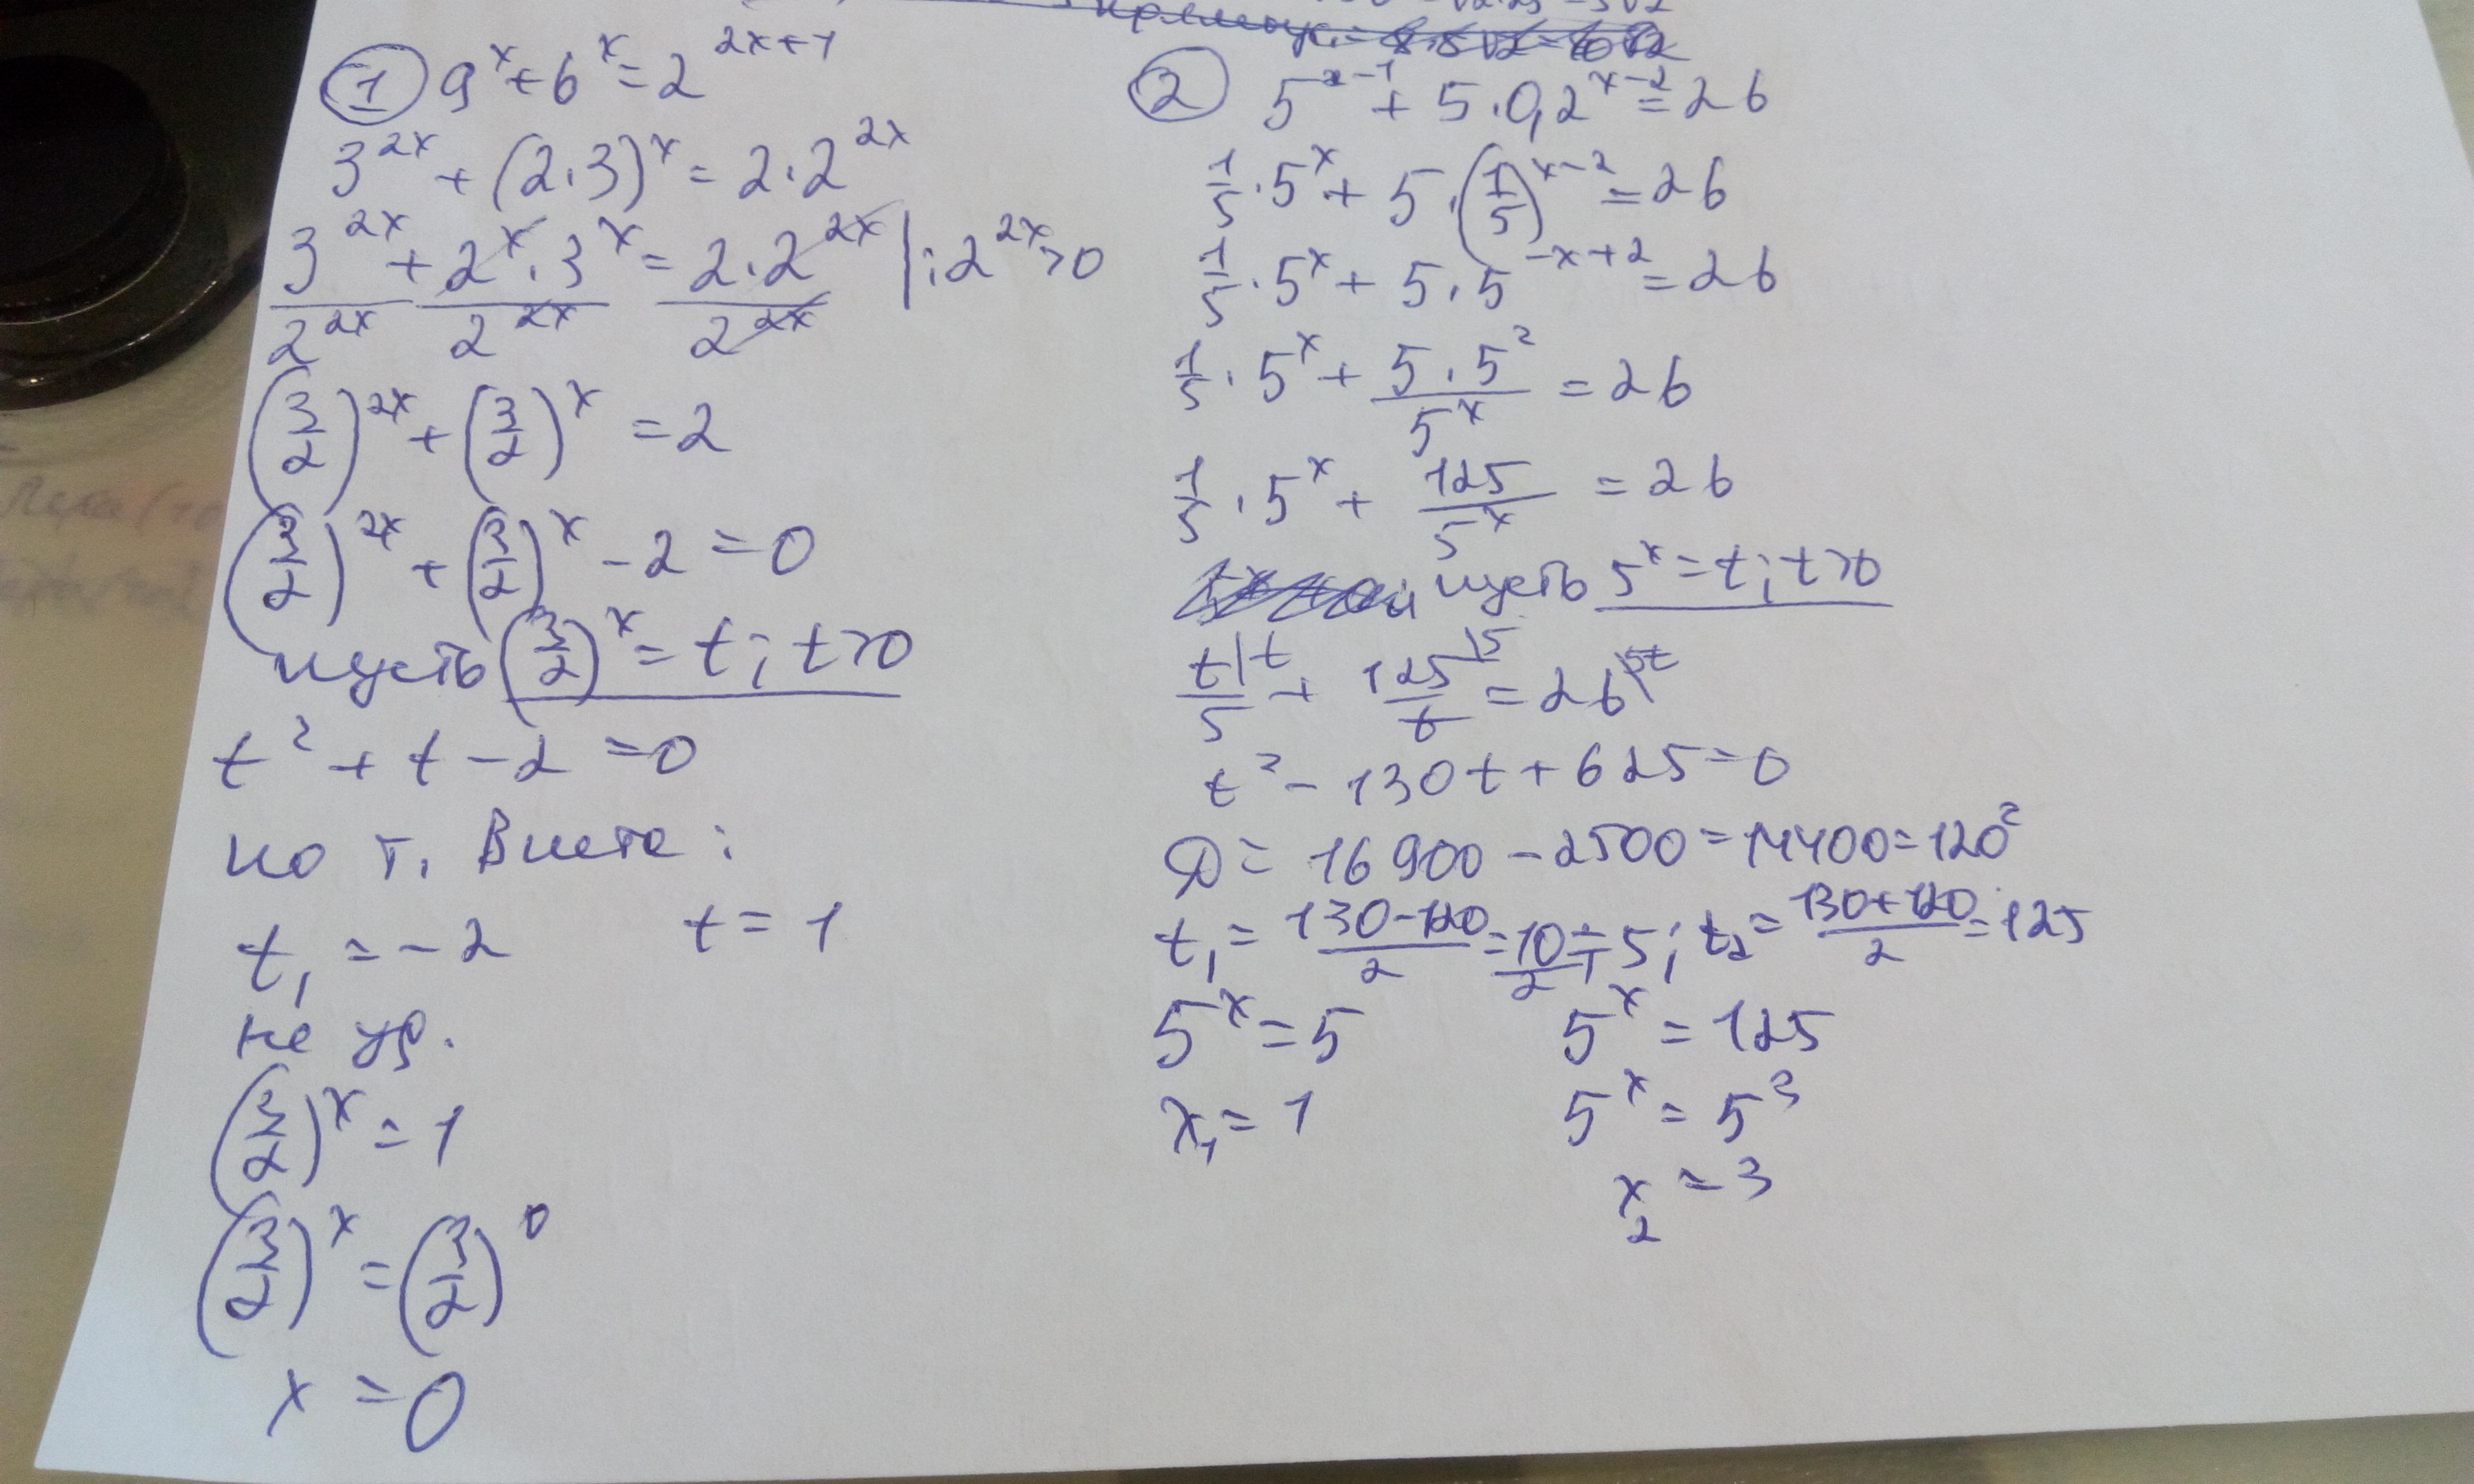 ① 9^x + 6^x = 2^(2x+1)
3^(2x) + (2·3)^x = 2·2^(2x)
3^(2x)/2^(2x) + 2^x·3^x/2^(2x) = 2·2^(2x)/2^(2x) | : 2^(2x) > 0
(3/2)^(2x) + (3/2)^x = 2
(3/2)^(2x) + (3/2)^x - 2 = 0
пусть (3/2)^x = t; t>0
t² + t - 2 = 0
по т. Виета:
t₁ = -2 t = 1
не уд.
(3/2)^x = 1
(3/2)^x = (3/2)^0
x = 0
② 5^(x-1) + 5·0,2^(x-2) = 26
1/5·5^x + 5·(1/5)^(x-2) = 26
1/5·5^x + 5·5^(-x+2) = 26
1/5·5^x + 5·5²/5^x = 26
1/5·5^x + 125/5^x = 26
пусть 5^x = t; t>0
t/5 |t + 125/t |5 = 26 |5t
t² - 130t + 625 = 0
D = 16900 - 2500 = 14400 = 120²
t₁ = (130-120)/2 = 10/2 = 5; t₂ = (130+120)/2 = 125
5^x = 5 5^x = 125
x₁ = 1 5^x = 5³
x₂ = 3